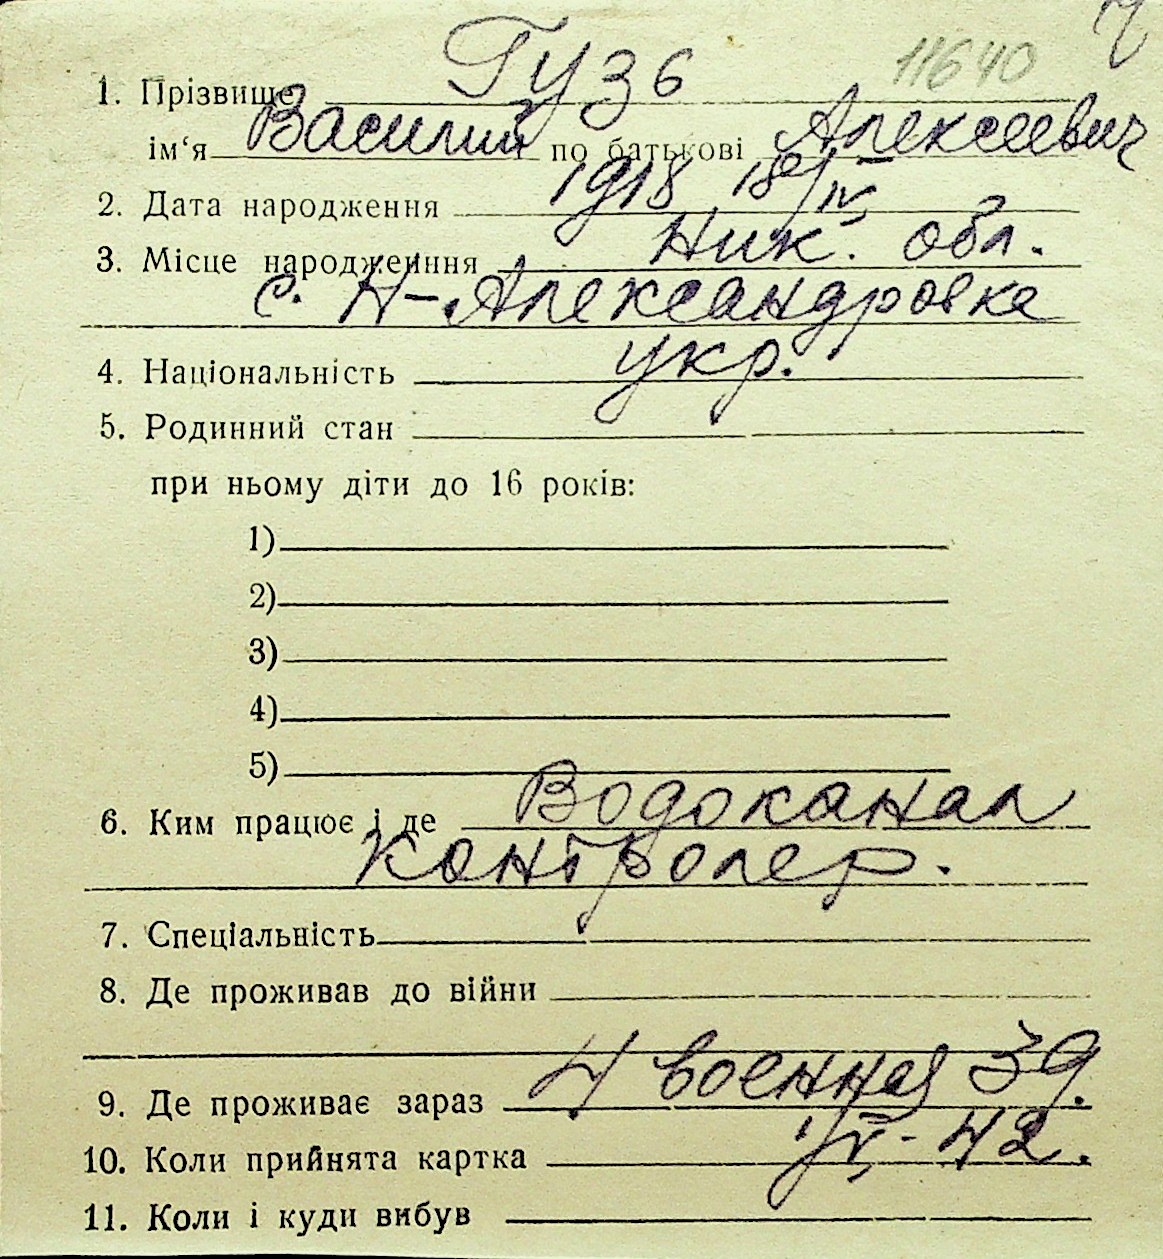 11640 Ч
1. Прізвище Гузь
ім‘я Василий по батькові Алексеевич
2. Дата народження 1918 18/IV
3. Місце народження Ник. обл.
с. Н-Александровка
4. Національність укр.
5. Родинний стан
при ньому діти до 16 років:
1)
2)
3)
4)
5)
6. Ким працює і де Водоканал
контролер.
7. Спеціальність
8. Де проживав до війни
9. Де проживає зараз 4 военная 39.
10. Коли прийнята картка 1/IV - 42.
11. Коли і куди вибув